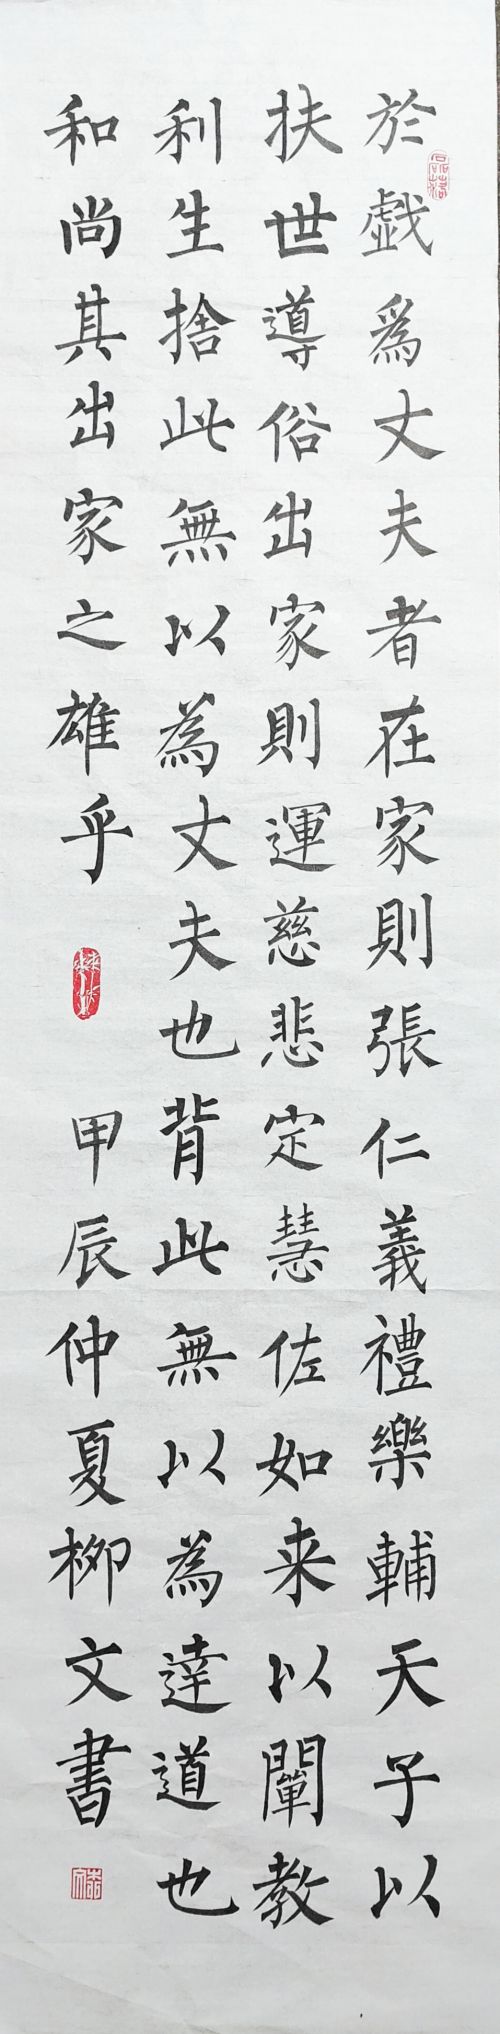 於戯爲丈夫者在家則張仁義禮樂輔天子以
扶世導俗出家則運慈悲定慧佐如来以闡教
利生捨此無以為丈夫也背此無以為達道也
和尚其出家之雄乎 甲辰仲夏柳文書